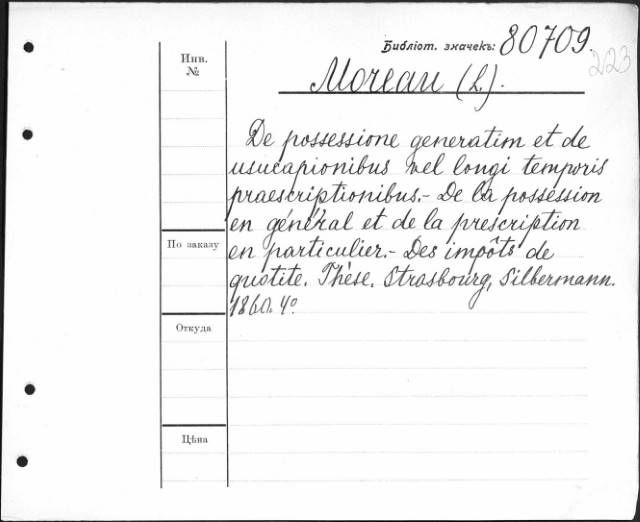 Библіот. значекъ: 80709.
223
Инв.
№
Moreau (L.).
De possessione generatim et de
usucapionibus vel longi temporis
praescriptionibus.- De la possession
en général et de la prescription
По заказу
en particulier.- Des impôts de
quotité. Thèse. Strasbourg, Silbermann.
1860. 4°
Откуда
Цѣна